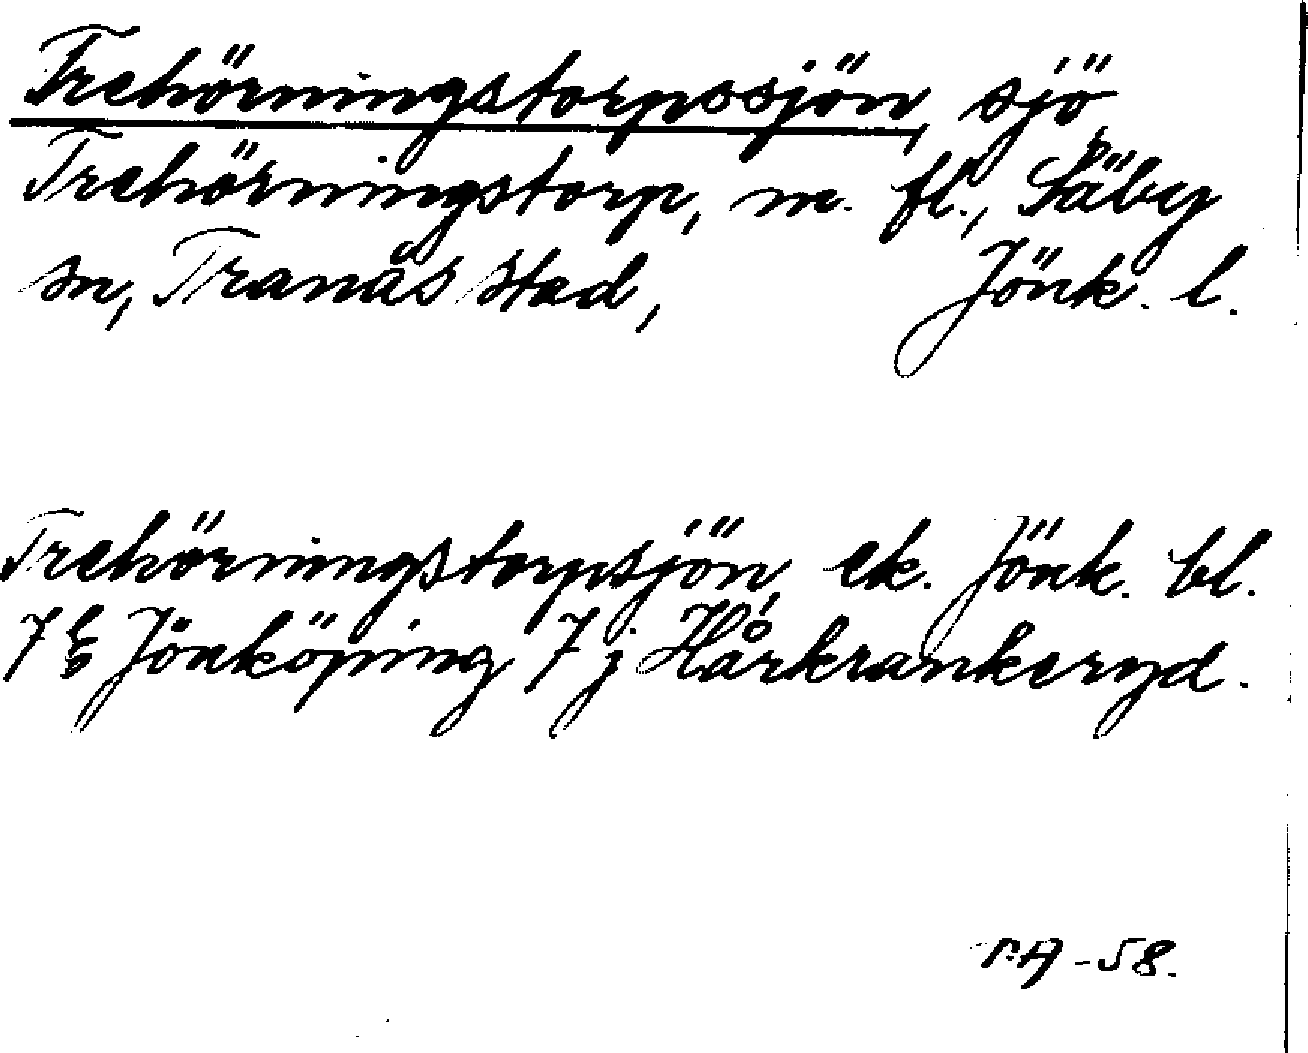 Trehörningstorpssjön, sjö
Trehörningstorp, m. fl., Säby
sn, Tranås stad, Jönk. l.
Trehörningstorpsjön, ek. Jönk. bl.
7 f Jönköping 7 j Hårkrankeryd.
-58.